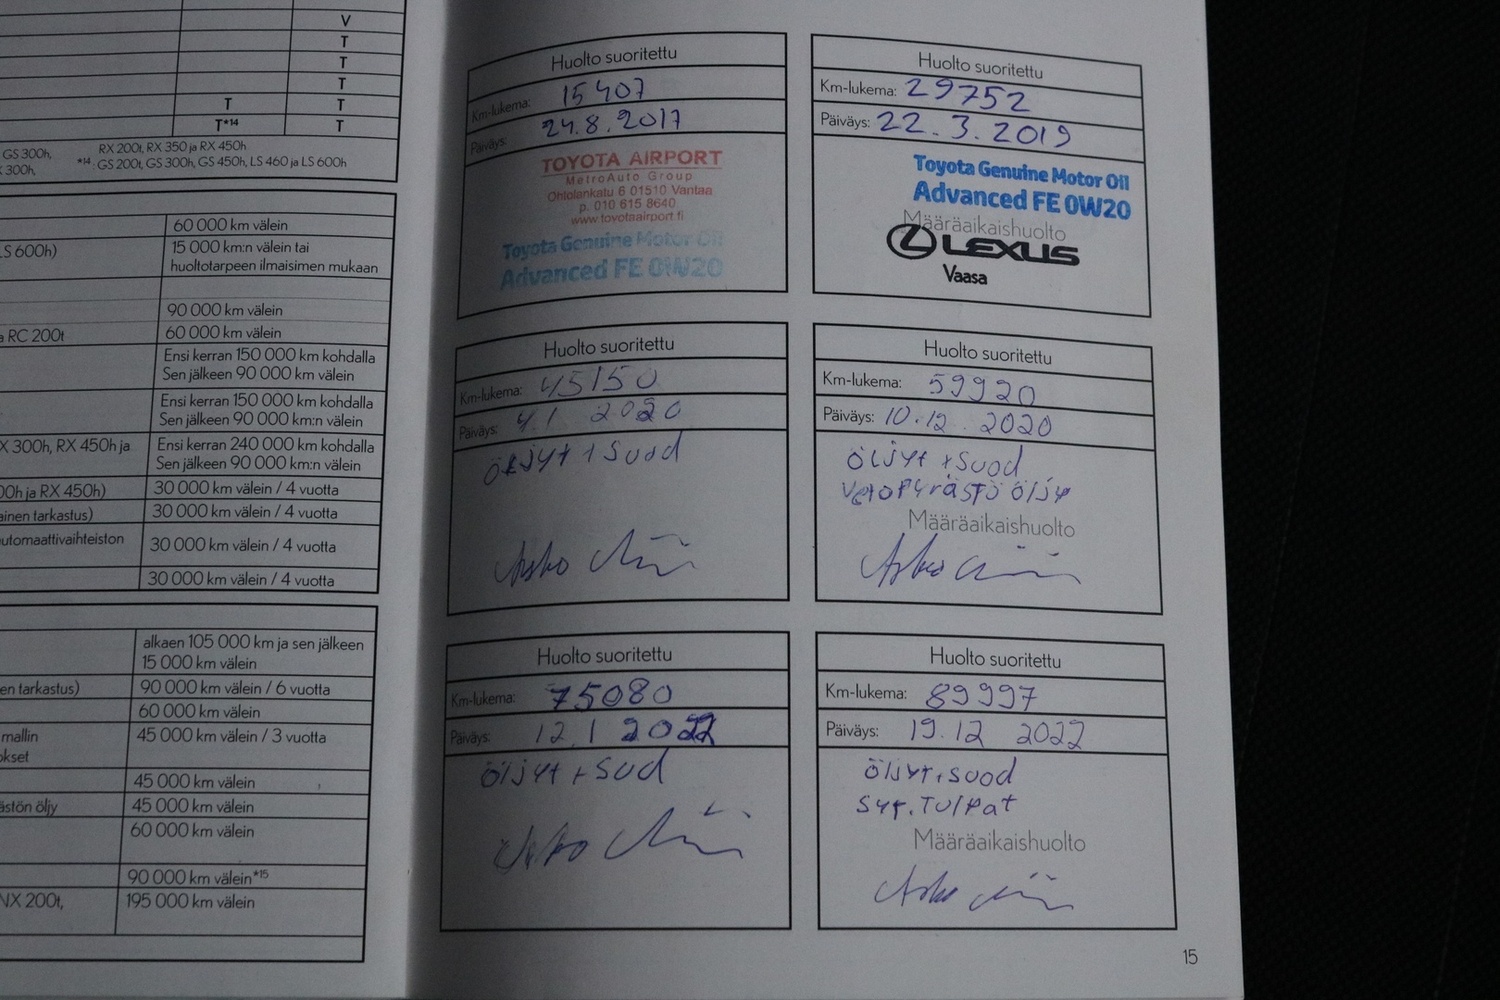 V
T
T
T
T T
T*14 T
GS 300h,
300h,
RX 200t, RX 350 ja RX 450h
*14 : GS 200t, GS 300h, GS 450h, LS 460 ja LS 600h
60 000 km välein
LS 600h)
15 000 km:n välein tai
huoltotarpeen ilmaisimen mukaan
90 000 km välein
a RC 200t
60 000 km välein
Ensi kerran 150 000 km kohdalla
Sen jälkeen 90 000 km välein
Ensi kerran 150 000 km kohdalla
Sen jälkeen 90 000 km:n välein
X 300h, RX 450h ja
Ensi kerran 240 000 km kohdalla
Sen jälkeen 90 000 km:n välein
00h ja RX 450h)
30 000 km välein / 4 vuotta
ainen tarkastus)
30 000 km välein / 4 vuotta
utomaattivaihteiston
30 000 km välein / 4 vuotta
30 000 km välein / 4 vuotta
alkaen 105 000 km ja sen jälkeen
15 000 km välein
en tarkastus)
90 000 km välein / 6 vuotta
60 000 km välein
mallin
okset
45 000 km välein / 3 vuotta
45 000 km välein
ästön öljy
45 000 km välein
60 000 km välein
90 000 km välein*15
NX 200t,
195 000 km välein
Huolto suoritettu
Km-lukema: 15407
Päiväys: 24.8.2017
TOYOTA AIRPORT
MetroAuto Group
Ohtolankatu 6 01510 Vantaa
p. 010 615 8640
www.toyotaairport.fi
Toyota Genuine Motor Oil
Advanced FE 0W20
Huolto suoritettu
Km-lukema: 29752
Päiväys: 22.3.2019
Toyota Genuine Motor Oil
Advanced FE 0W20
Määräaikaishuolto
LEXUS
Vaasa
Huolto suoritettu
Km-lukema: 45150
Päiväys: 4.1 2020
öljyt + suod
Huolto suoritettu
Km-lukema: 59920
Päiväys: 10.12.2020
öljyt + suod
vetopyrästö öljy
Määräaikaishuolto
Huolto suoritettu
Km-lukema: 75080
Päiväys: 12.1 2022
öljyt + suod
Huolto suoritettu
Km-lukema: 89997
Päiväys: 19.12 2022
öljyt + suod
syt. tulpat
Määräaikaishuolto
15